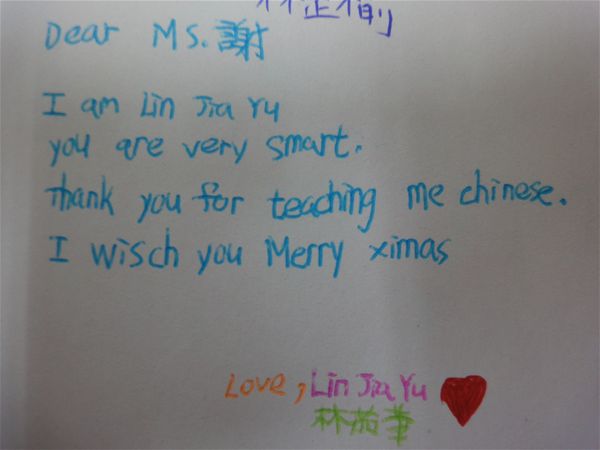 Dear Ms. 謝
I am Lin Jia Yu
you are very smart.
thank you for teaching me chinese.
I wisch you Merry ximas
Love, Lin Jia Yu
林茄